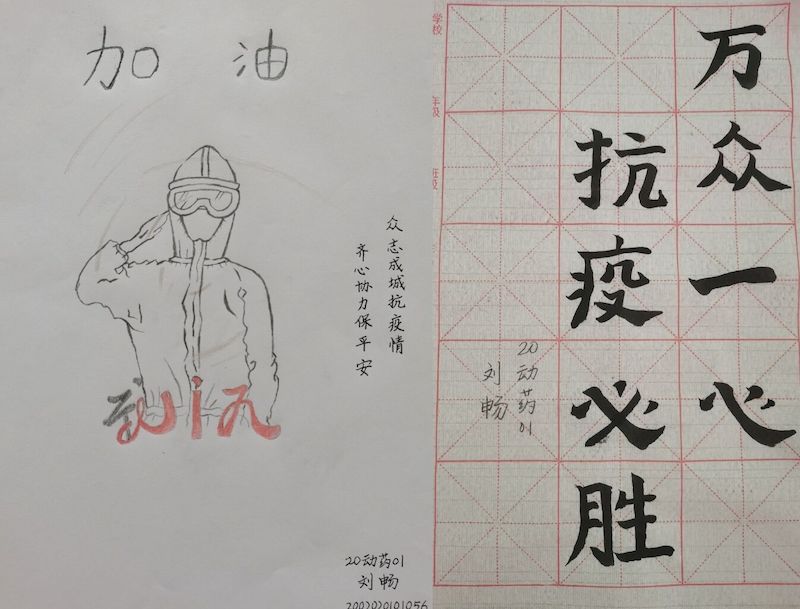 加 油
众志成城抗疫情
齐心协力保平安
20动药01
刘畅
2002020101056
学校
年级
班级
万众一心
抗疫必胜
20动药01
刘畅